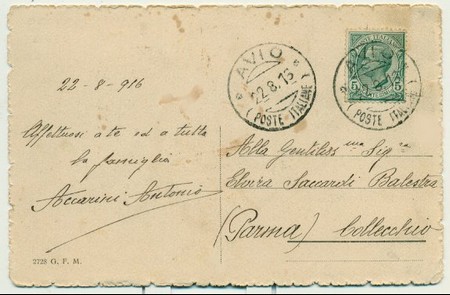 22-8-916
Affettuosi a te ed a tutta
la famiglia
Accarini Antonio
2723 G. F. M.
AVIO
22.8.16
POSTE ITALIANE
POSTE ITALIANE
5 5
AVIO
POSTE ITALIANE
Alla Gentilis ma Sig ra
Elvira Saccardi Balestra
(Parma) Collecchio